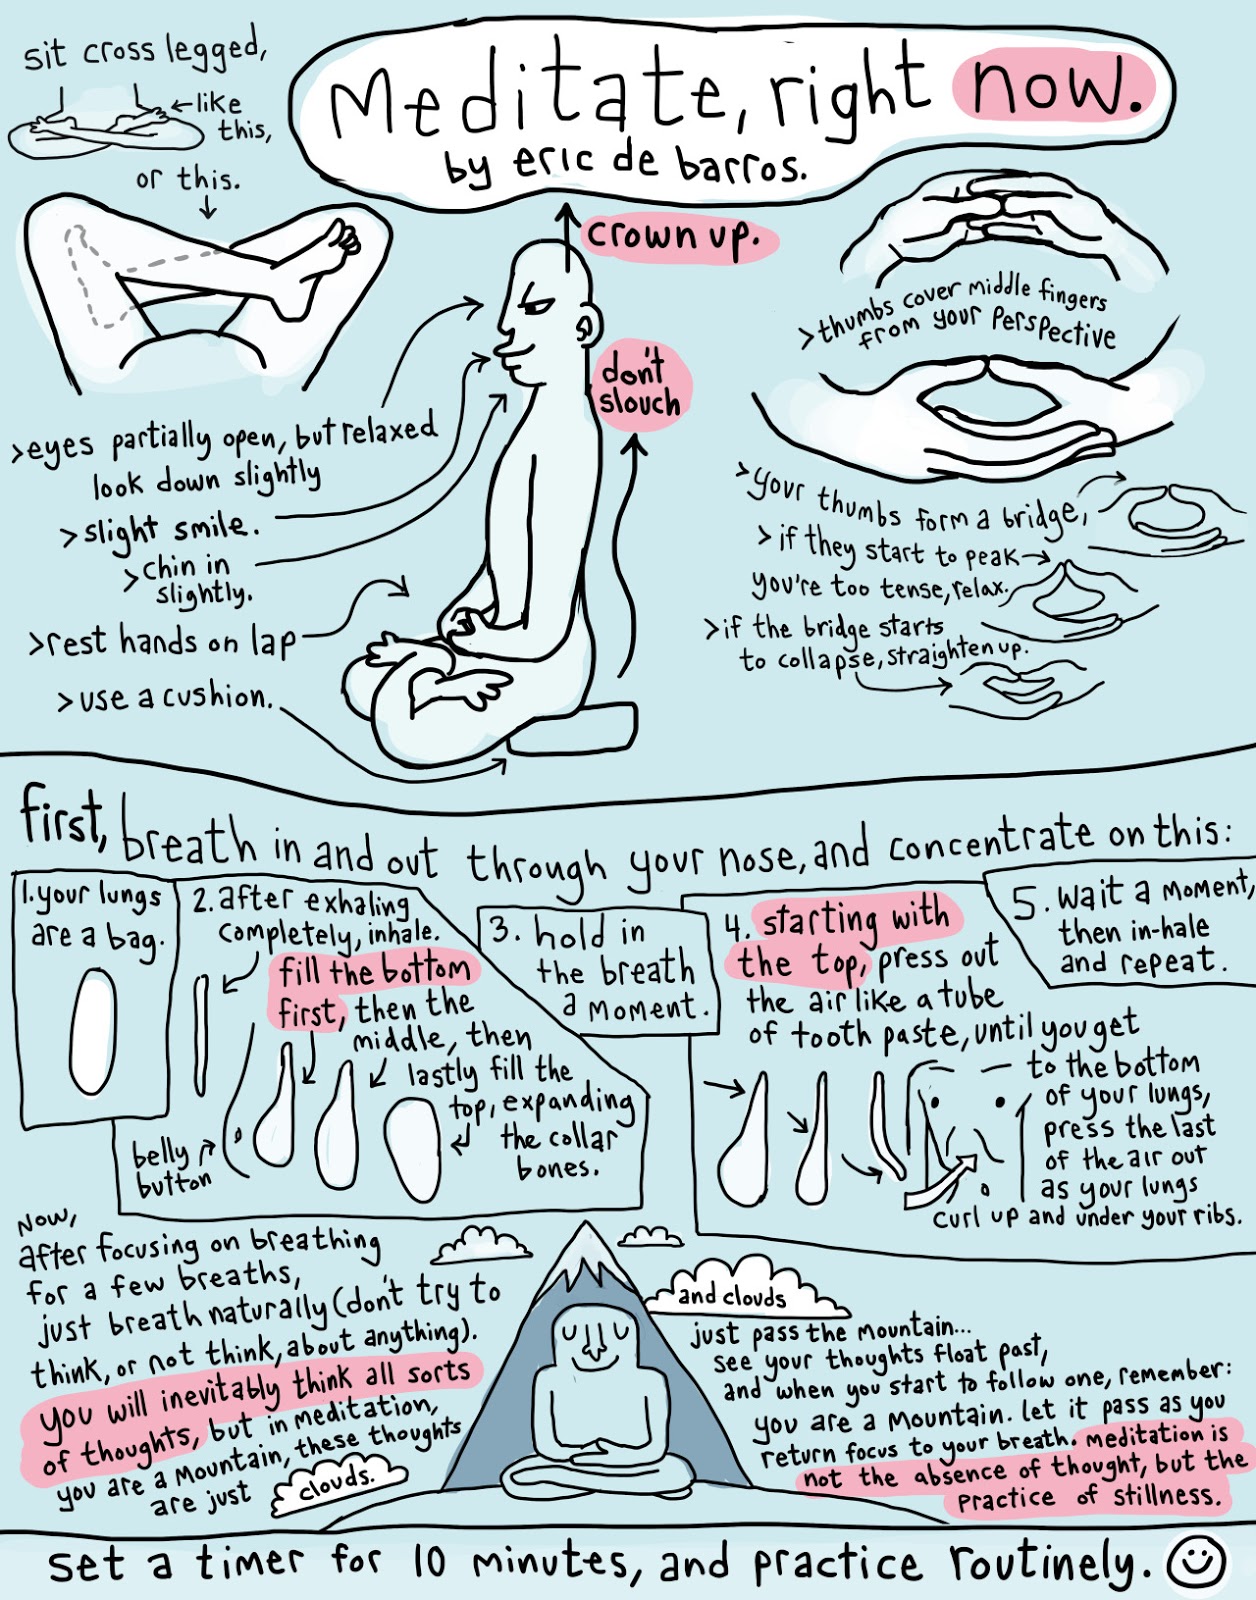 Meditate, right now.
by eric de barros.
sit cross legged,
←like
this,
or this.
crown up.
don't
slouch
>eyes partially open, but relaxed
look down slightly
>slight smile.
>chin in
slightly.
>rest hands on lap
>use a cushion.
>thumbs cover middle fingers
from your perspective
>your thumbs form a bridge,
>if they start to peak
you're too tense, relax.
>if the bridge starts
to collapse, straighten up.
first, breath in and out through your nose, and concentrate on this:
1. your lungs
are a bag.
2. after exhaling
completely, inhale.
fill the bottom
first, then the
middle, then
lastly fill the
top, expanding
the collar
bones.
belly
button
3. hold in
the breath
a moment.
4. starting with
the top, press out
the air like a tube
of tooth paste, until you get
to the bottom
of your lungs,
press the last
of the air out
as your lungs
curl up and under your ribs.
5. wait a moment,
then in-hale
and repeat.
Now,
after focusing on breathing
for a few breaths,
just breath naturally (don't try to
think, or not think, about anything).
you will inevitably think all sorts
of thoughts, but in meditation,
you are a mountain, these thoughts
are just clouds.
and clouds
just pass the mountain...
see your thoughts float past,
and when you start to follow one, remember:
you are a mountain. let it pass as you
return focus to your breath. meditation is
not the absence of thought, but the
practice of stillness.
set a timer for 10 minutes, and practice routinely.